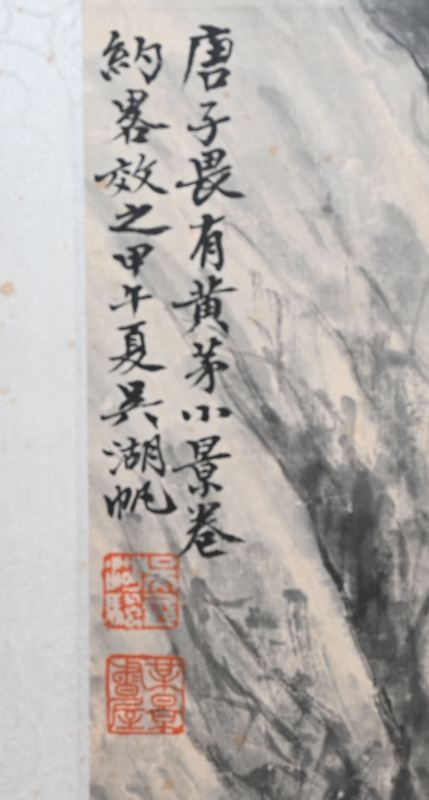 唐子畏有黄茅小景卷
約畧效之甲午夏吴湖帆